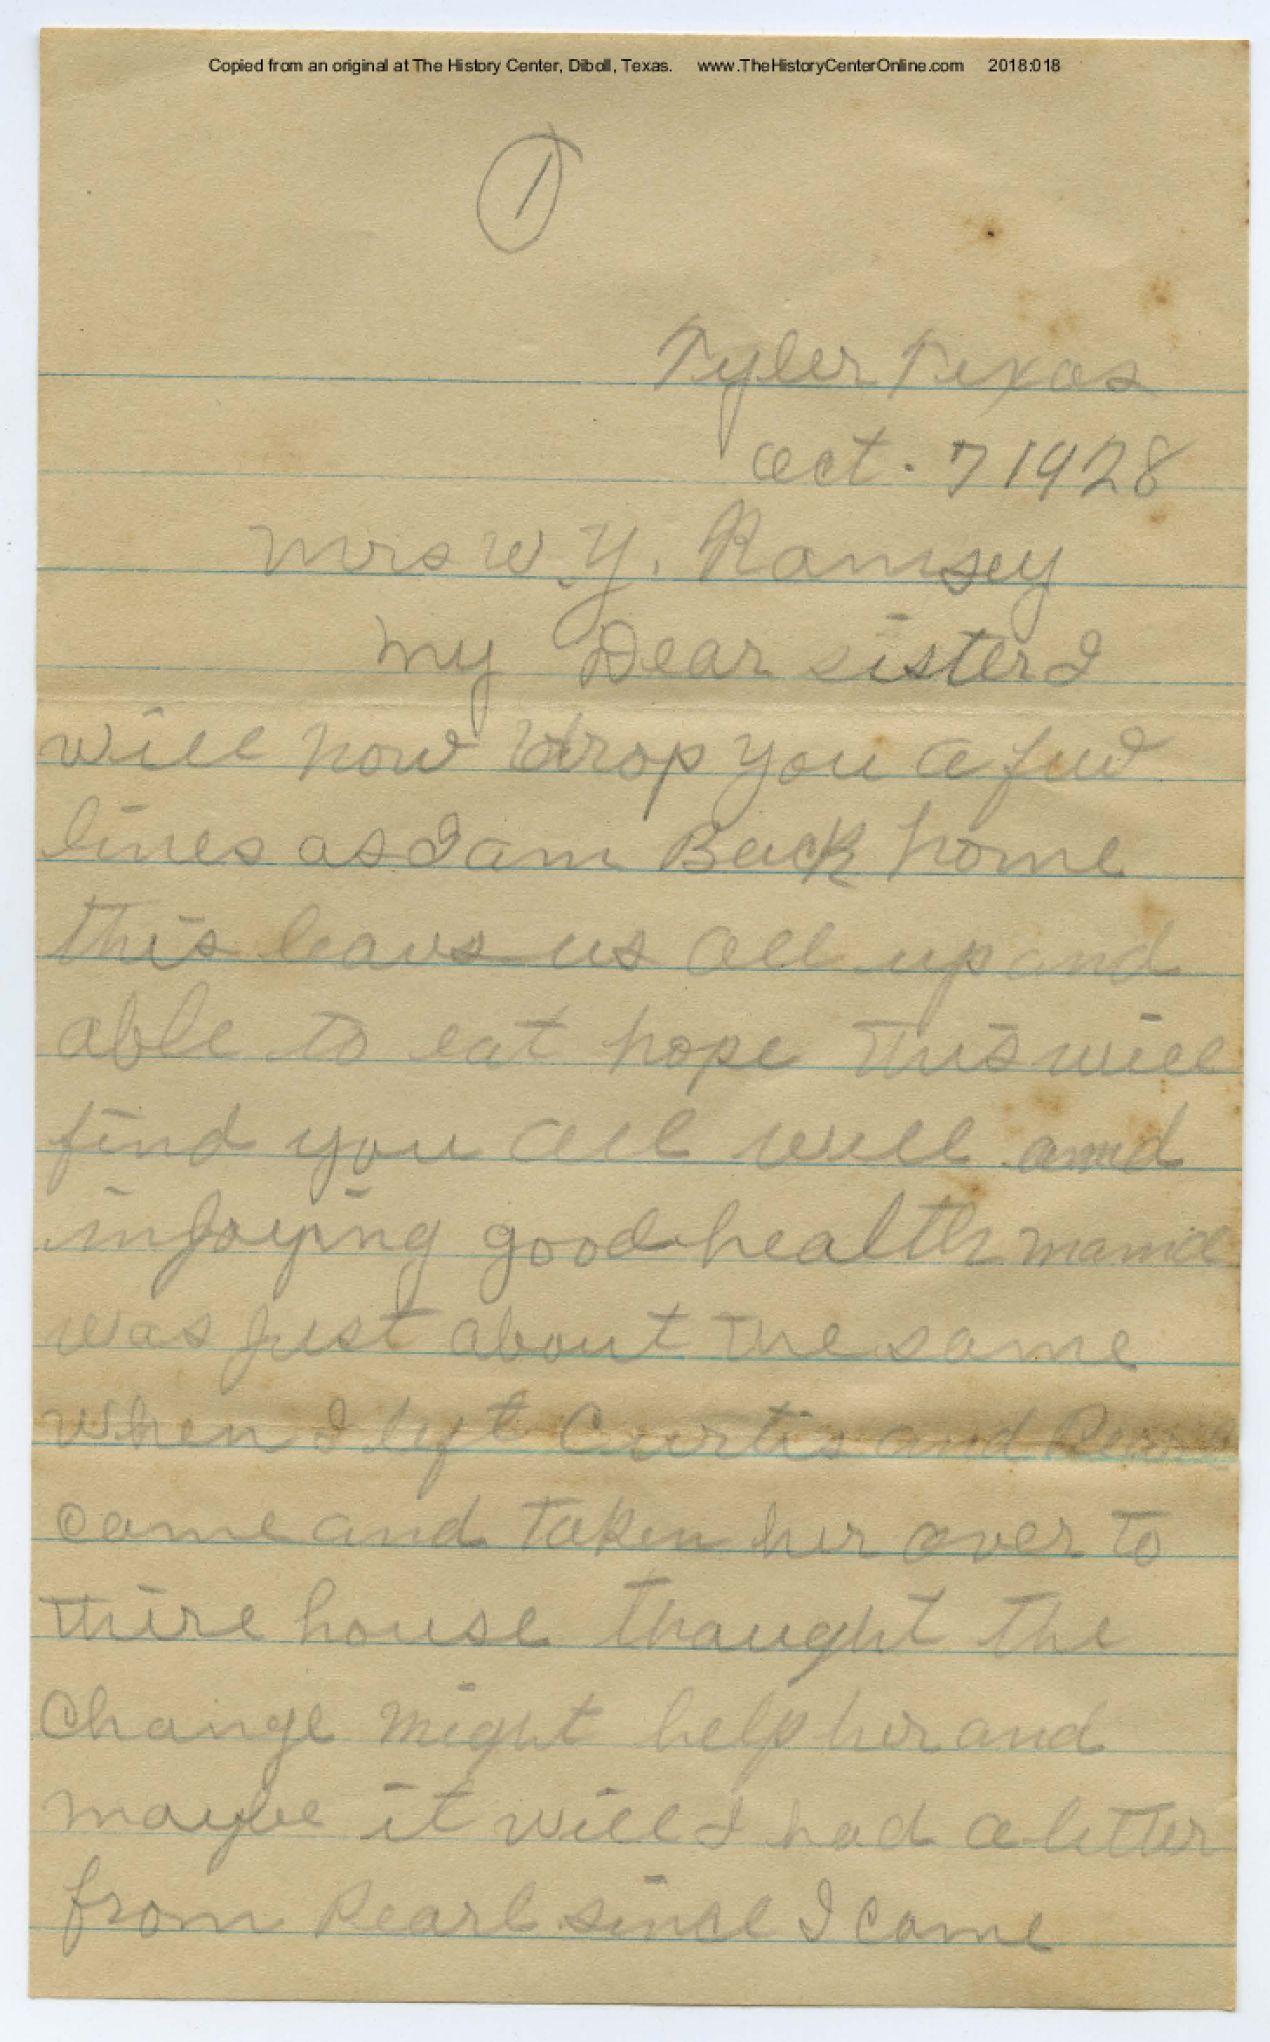 Copied from an original at The History Center, Diboll, Texas. www.TheHistoryCenterOnline.com 2018:018
1
Tyler Texas
Oct. 7 1928
Mrs W. Y. Ramsey
My Dear sister I
will now drop you a few
lines as I am Back home
this leavs us all up and
able to eat hope this will
find you all well and
injoying good health mama
was just about the same
when I left Curtis and Pearl
came and taken her over to
thire house thought the
change might help her and
maybe it will I had a letter
from Pearl since I came